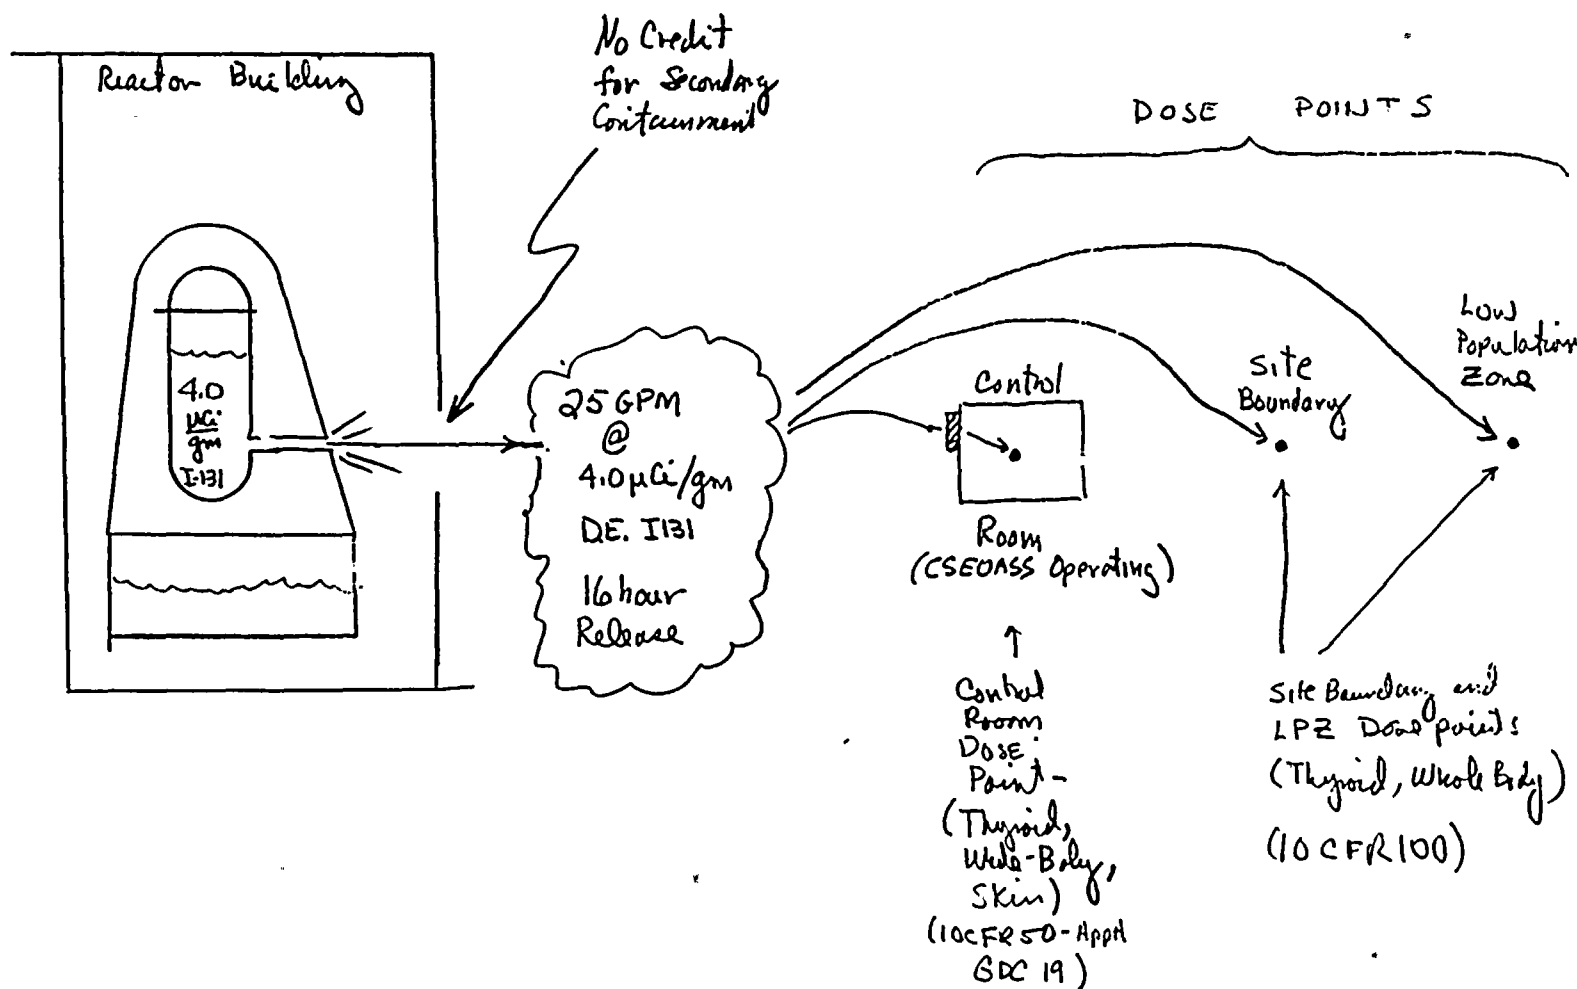 No Credit
for Secondary
Containment
Reactor Building
DOSE POINTS
4.0
µCi
gm
I-131
25 GPM
@
4.0 µCi/gm
D.E. I131
16 hour
Release
Control
Room
(CSEOASS Operating)
Site
Boundary
Low
Population
Zone
Control
Room
Dose
Point-
(Thyroid,
Whole-Body,
Skin)
(10CFR50-AppA
GDC 19)
Site Boundary and
LPZ Dose points
(Thyroid, Whole Body)
(10CFR100)